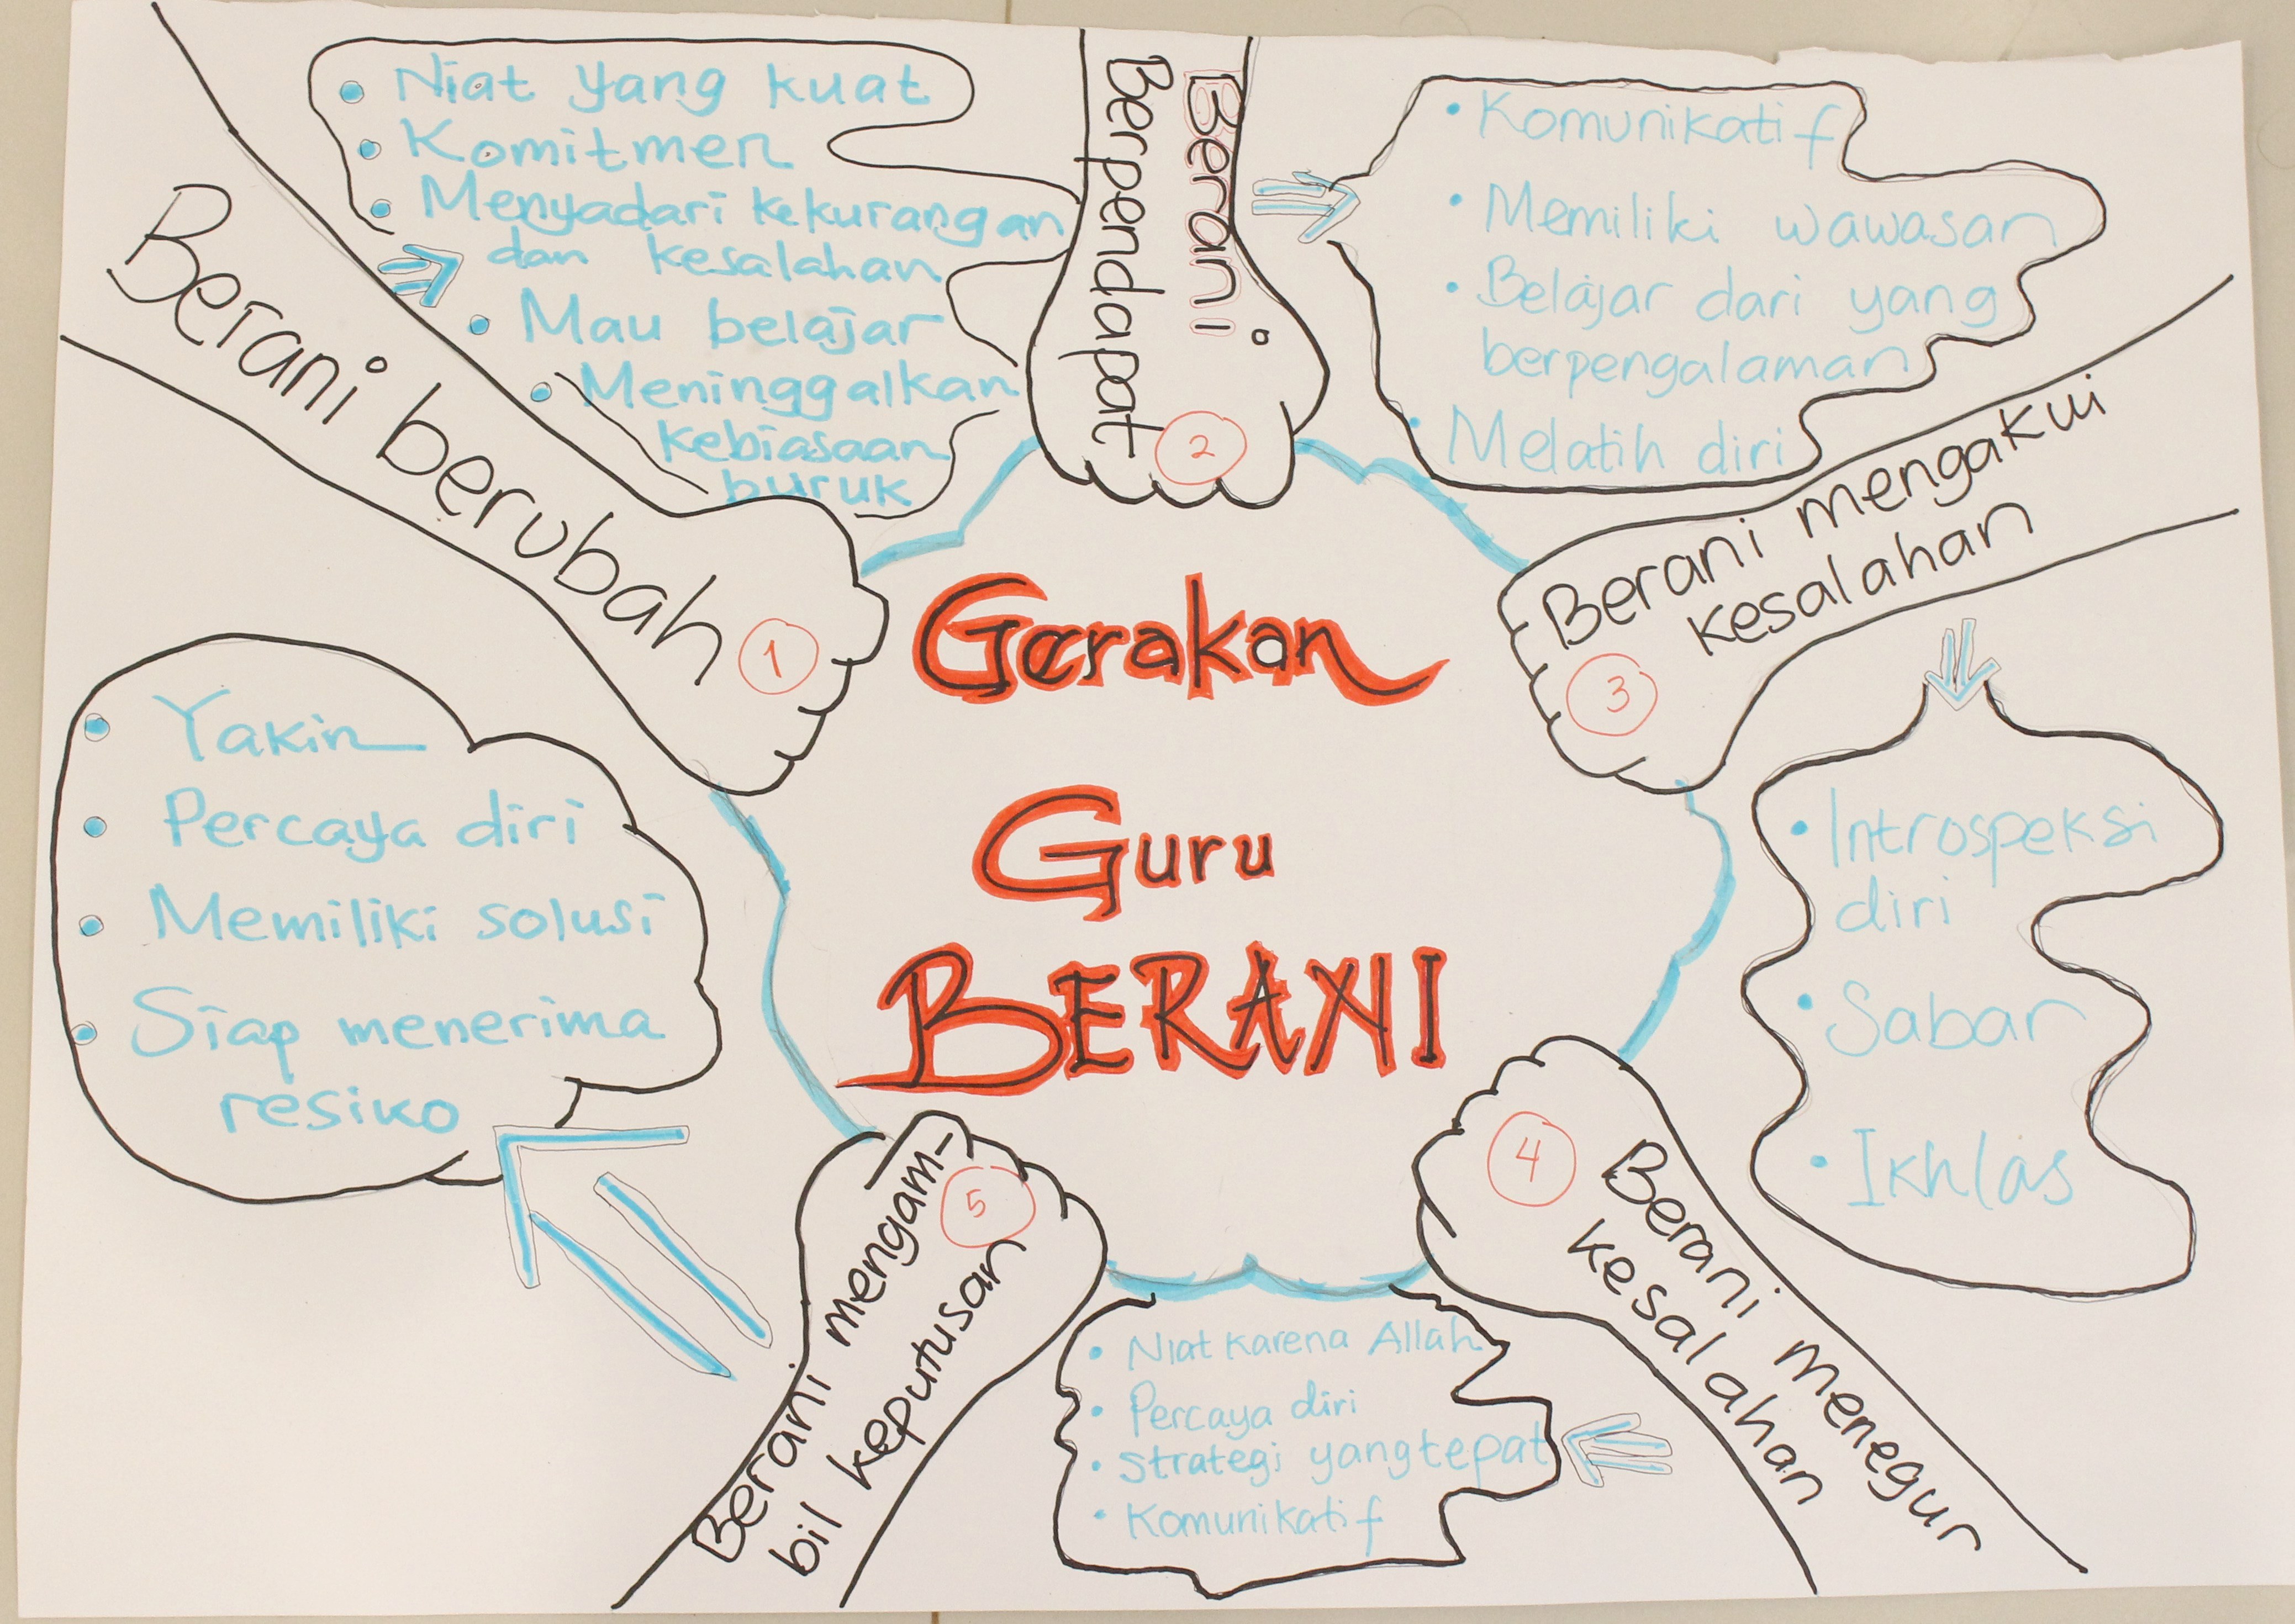 Gerakan
Guru
BERANI
Berani berubah
1
• Niat yang kuat
• Komitmen
• Menyadari kekurangan
dan kesalahan
• Mau belajar
• Meninggalkan
kebiasaan
buruk
Berani
Berpendapat
2
• Komunikatif
• Memiliki wawasan
• Belajar dari yang
berpengalaman
• Melatih diri
Berani mengakui
kesalahan
3
• Introspeksi
diri
• Sabar
• Ikhlas
4
Berani menegur
kesalahan
• Niat karena Allah
• Percaya diri
• strategi yang tepat
• Komunikatif
5
Berani mengam-
bil keputusan
• Yakin
• Percaya diri
• Memiliki solusi
• Siap menerima
resiko